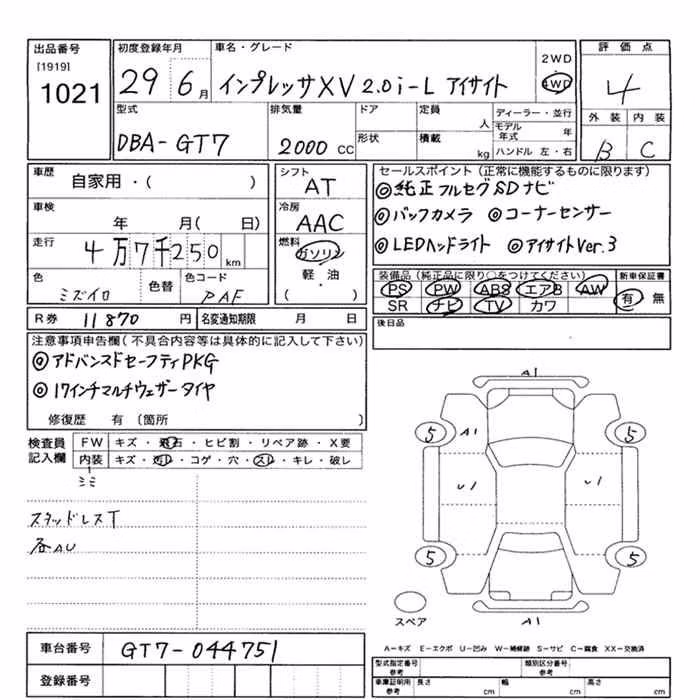 出品番号 初度登録年月 車名・グレード 2WD 評価点
[1919] 1021 29 6月 インプレッサXV 2.0i-L アイサイト 4WD 4
型式 排気量 ドア 定員 人 ディーラー・並行 外装 内装
DBA-GT7 2000 CC 形状 積載 kg モデル年式 年 ハンドル 左・右 B C
車歴 自家用・( ) シフト AT セールスポイント(正常に機能するものに限ります)
◎純正フルセグSDナビ
車検 年 月( 日) 冷房 AAC ◎バックカメラ ◎コーナーセンサー
走行 4万7千250km 燃料 ガソリン ◎LEDヘッドライト ◎アイサイトVer.3
軽・油
( )
色 ミズイロ 色替 色コード PAF
装備品(純正品に限り○をつけてください) 新車保証書
PS PW ABS エアB AW 有 無
SR ナビ TV カワ
R券 11870円 名変通知期限 月 日 後日品
注意事項申告欄(不具合内容等は具体的に記入して下さい)
◎アドバンスドセーフティPKG
◎17インチマルチウェザータイヤ
修復歴 有 〔箇所 〕
検査員記入欄 FW キズ・飛石・ヒビ割・リペア跡・X要
内装 キズ・汚レ・コゲ・穴・スレ・キレ・破レ
ミミ
スタッドレスT
各AU
A1
5 A1 5
U1 U1
5 5
スペア A1
車台番号 GT7-044751
登録番号
A-キズ E-エクボ U-凹み W-補修跡 S-サビ C-腐食 XX-交換済
型式指定番号 参考 類別区分番号 参考
車庫証明用 参考 長さ cm 幅 cm 高さ cm